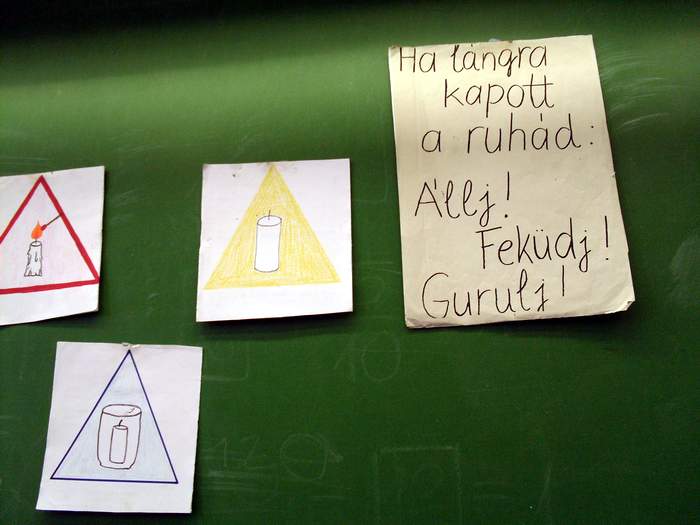 Ha lángra
kapott
a ruhád:
Állj!
Feküdj!
Gurulj!